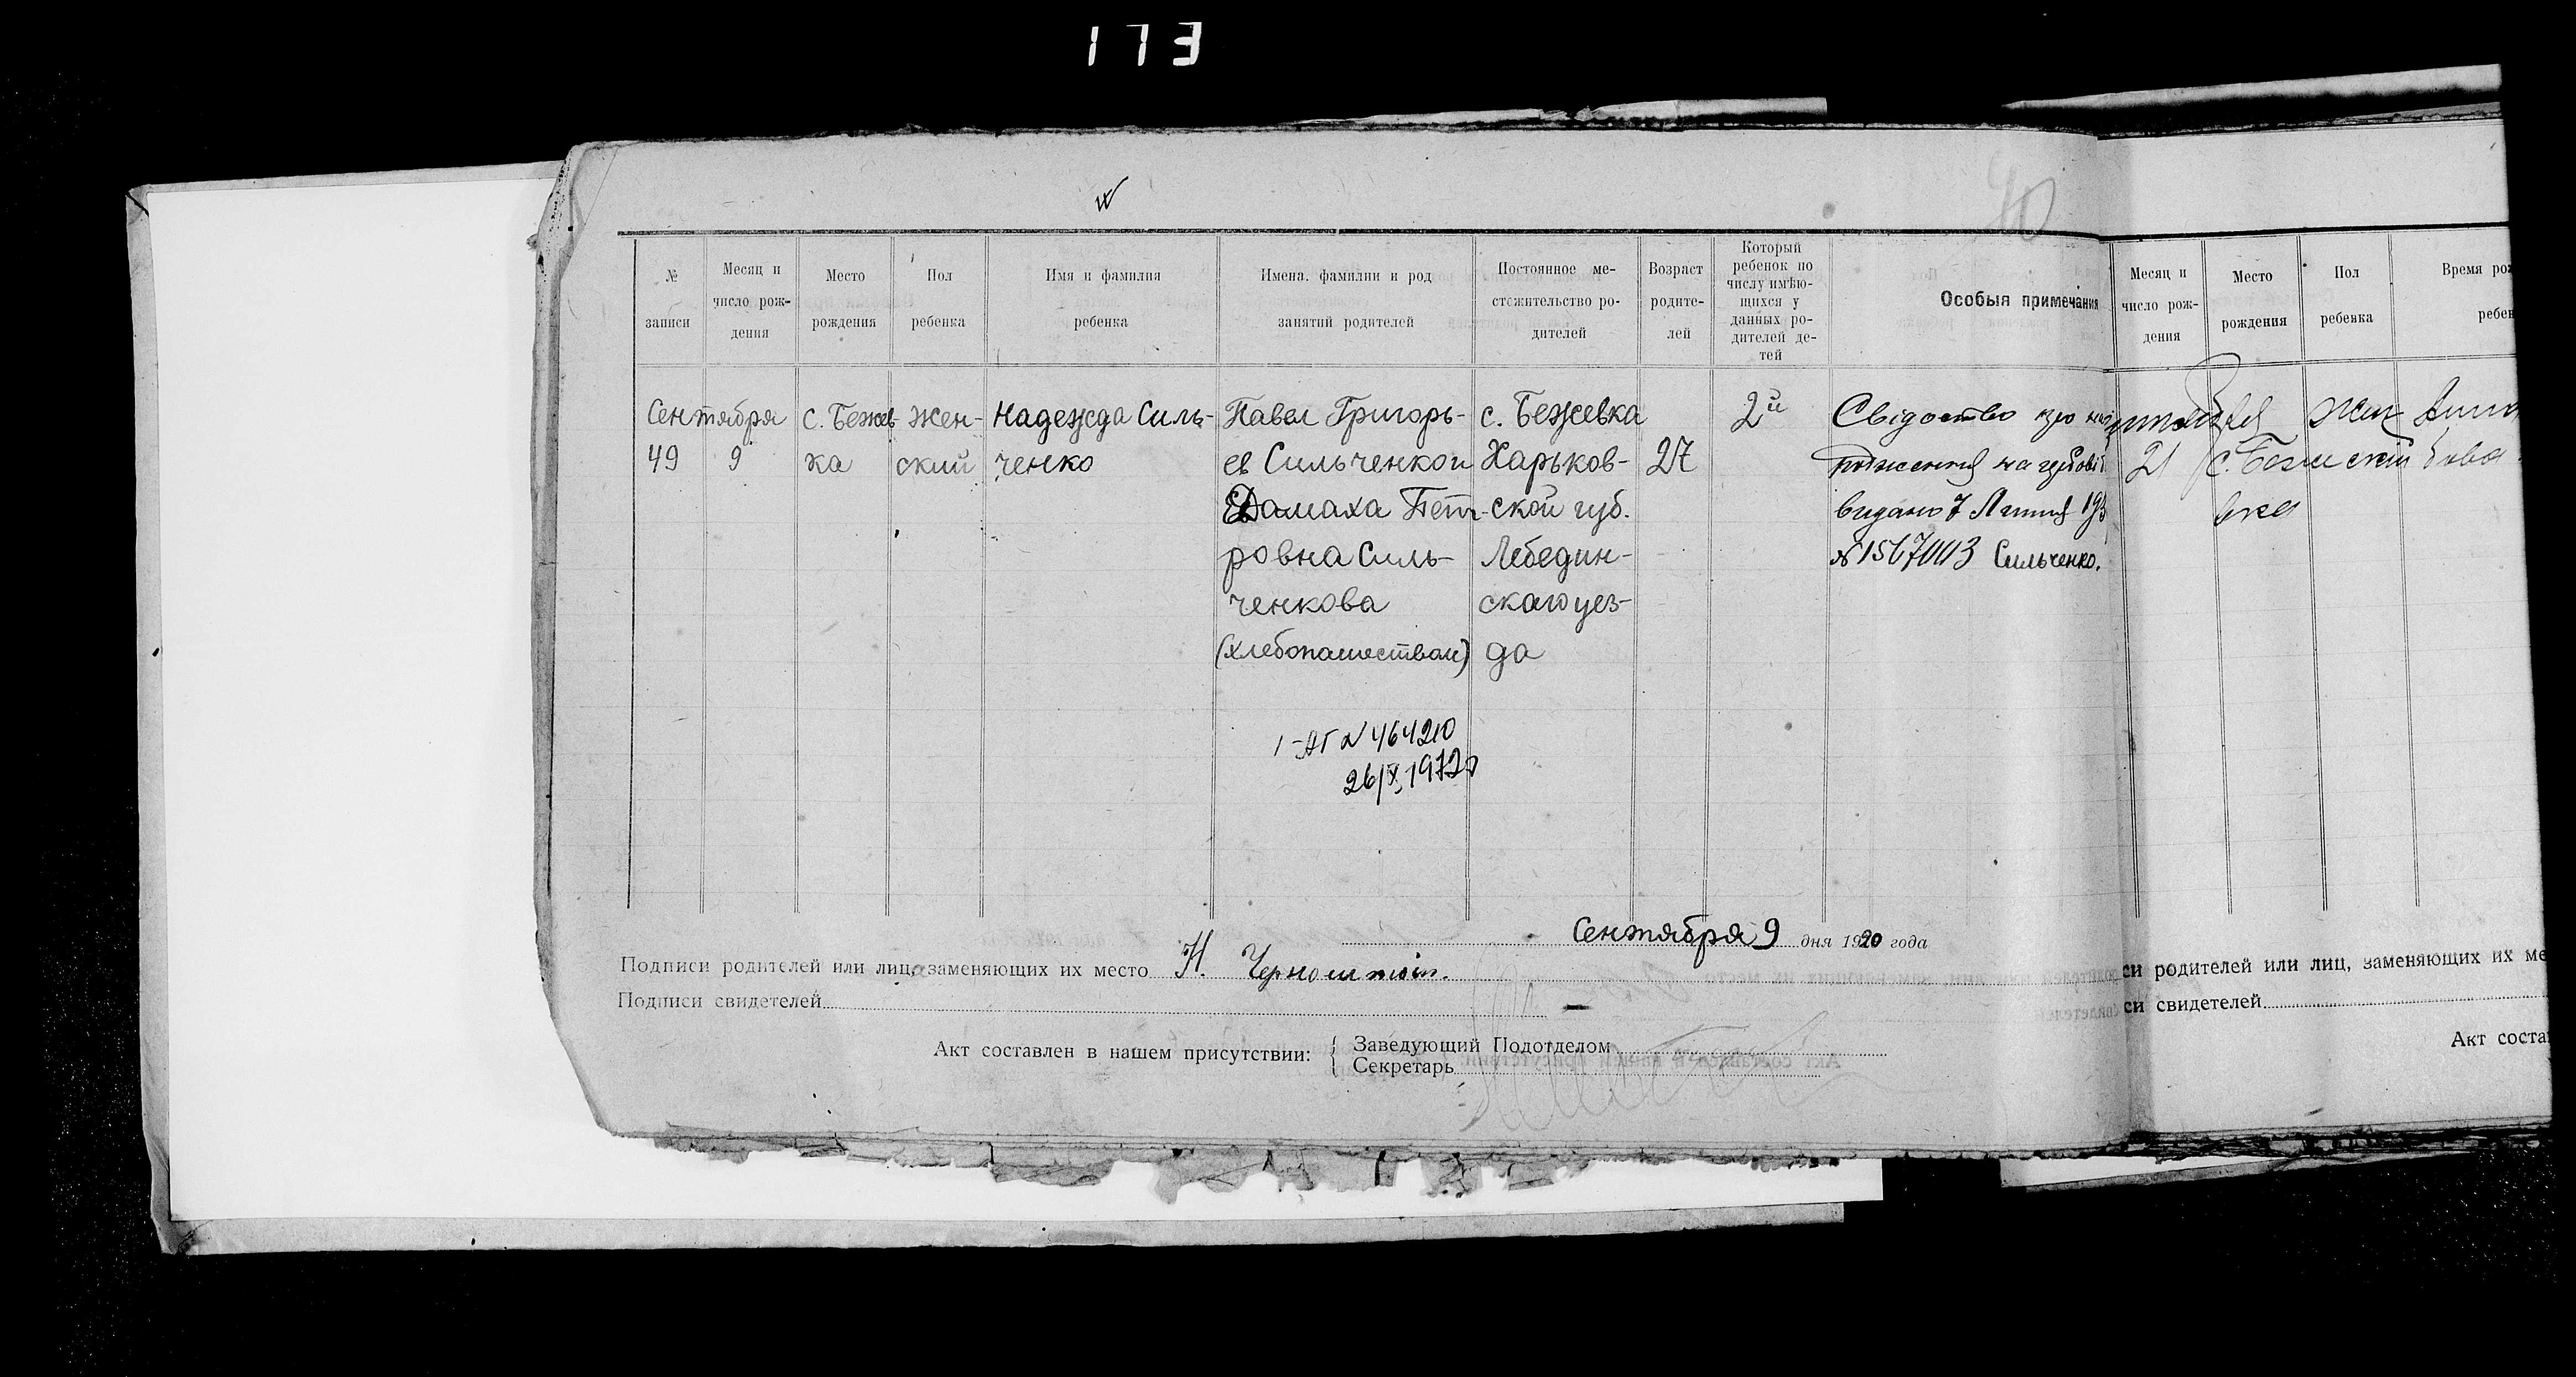 173
№ записи
Месяц и число рождения
Место рождения
Пол ребенка
Имя и фамилия ребенка
Имена, фамилии и род занятий родителей
Постоянное местожительство родителей
Возраст родителей
Который ребенок по числу имѣющихся у данных родителей детей
Особыя примечания
Сентября
49
9
с. Бежев-
ка
Жен-
ский
Надежда Силь-
ченко
Павел Григорь-
ев Сильченко и
Дамаха Пет-
ровна Силь-
ченкова
(хлебопашеством)
с. Бежевка
Харьков-
ской губ.
Лебедин-
скаго уез-
да
27
2й
Свідоцтво про
видано 7
Сильченко.
I-АГ № 464210
26/X 1972
Сентября 9 дня 1920 года
Подписи родителей или лиц, заменяющих их место Н.
Подписи свидетелей —
Акт составлен в нашем присутствии:
Заведующий Подотделом
Секретарь
Месяц и
число рож-
дения
Место
рождения
Пол
ребенка
Время рож
ребен
21
си родителей или лиц, заменяющих их ме
си свидетелей
Акт соста